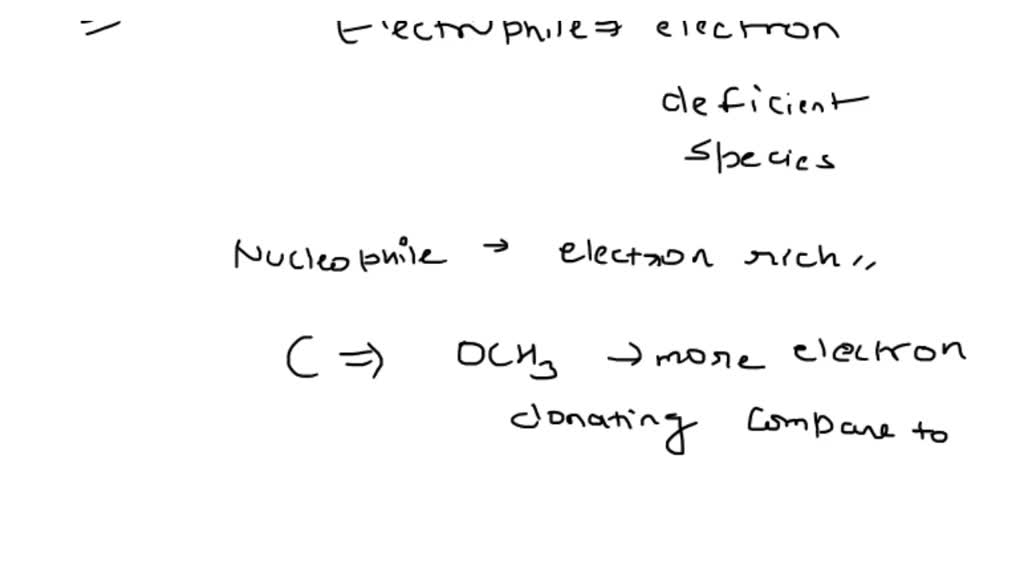 = Electrophile ⇒ electron
deficient
species
Nucleophile → electron rich ,,
C ⇒ OCH3 → more electron
donating compare to